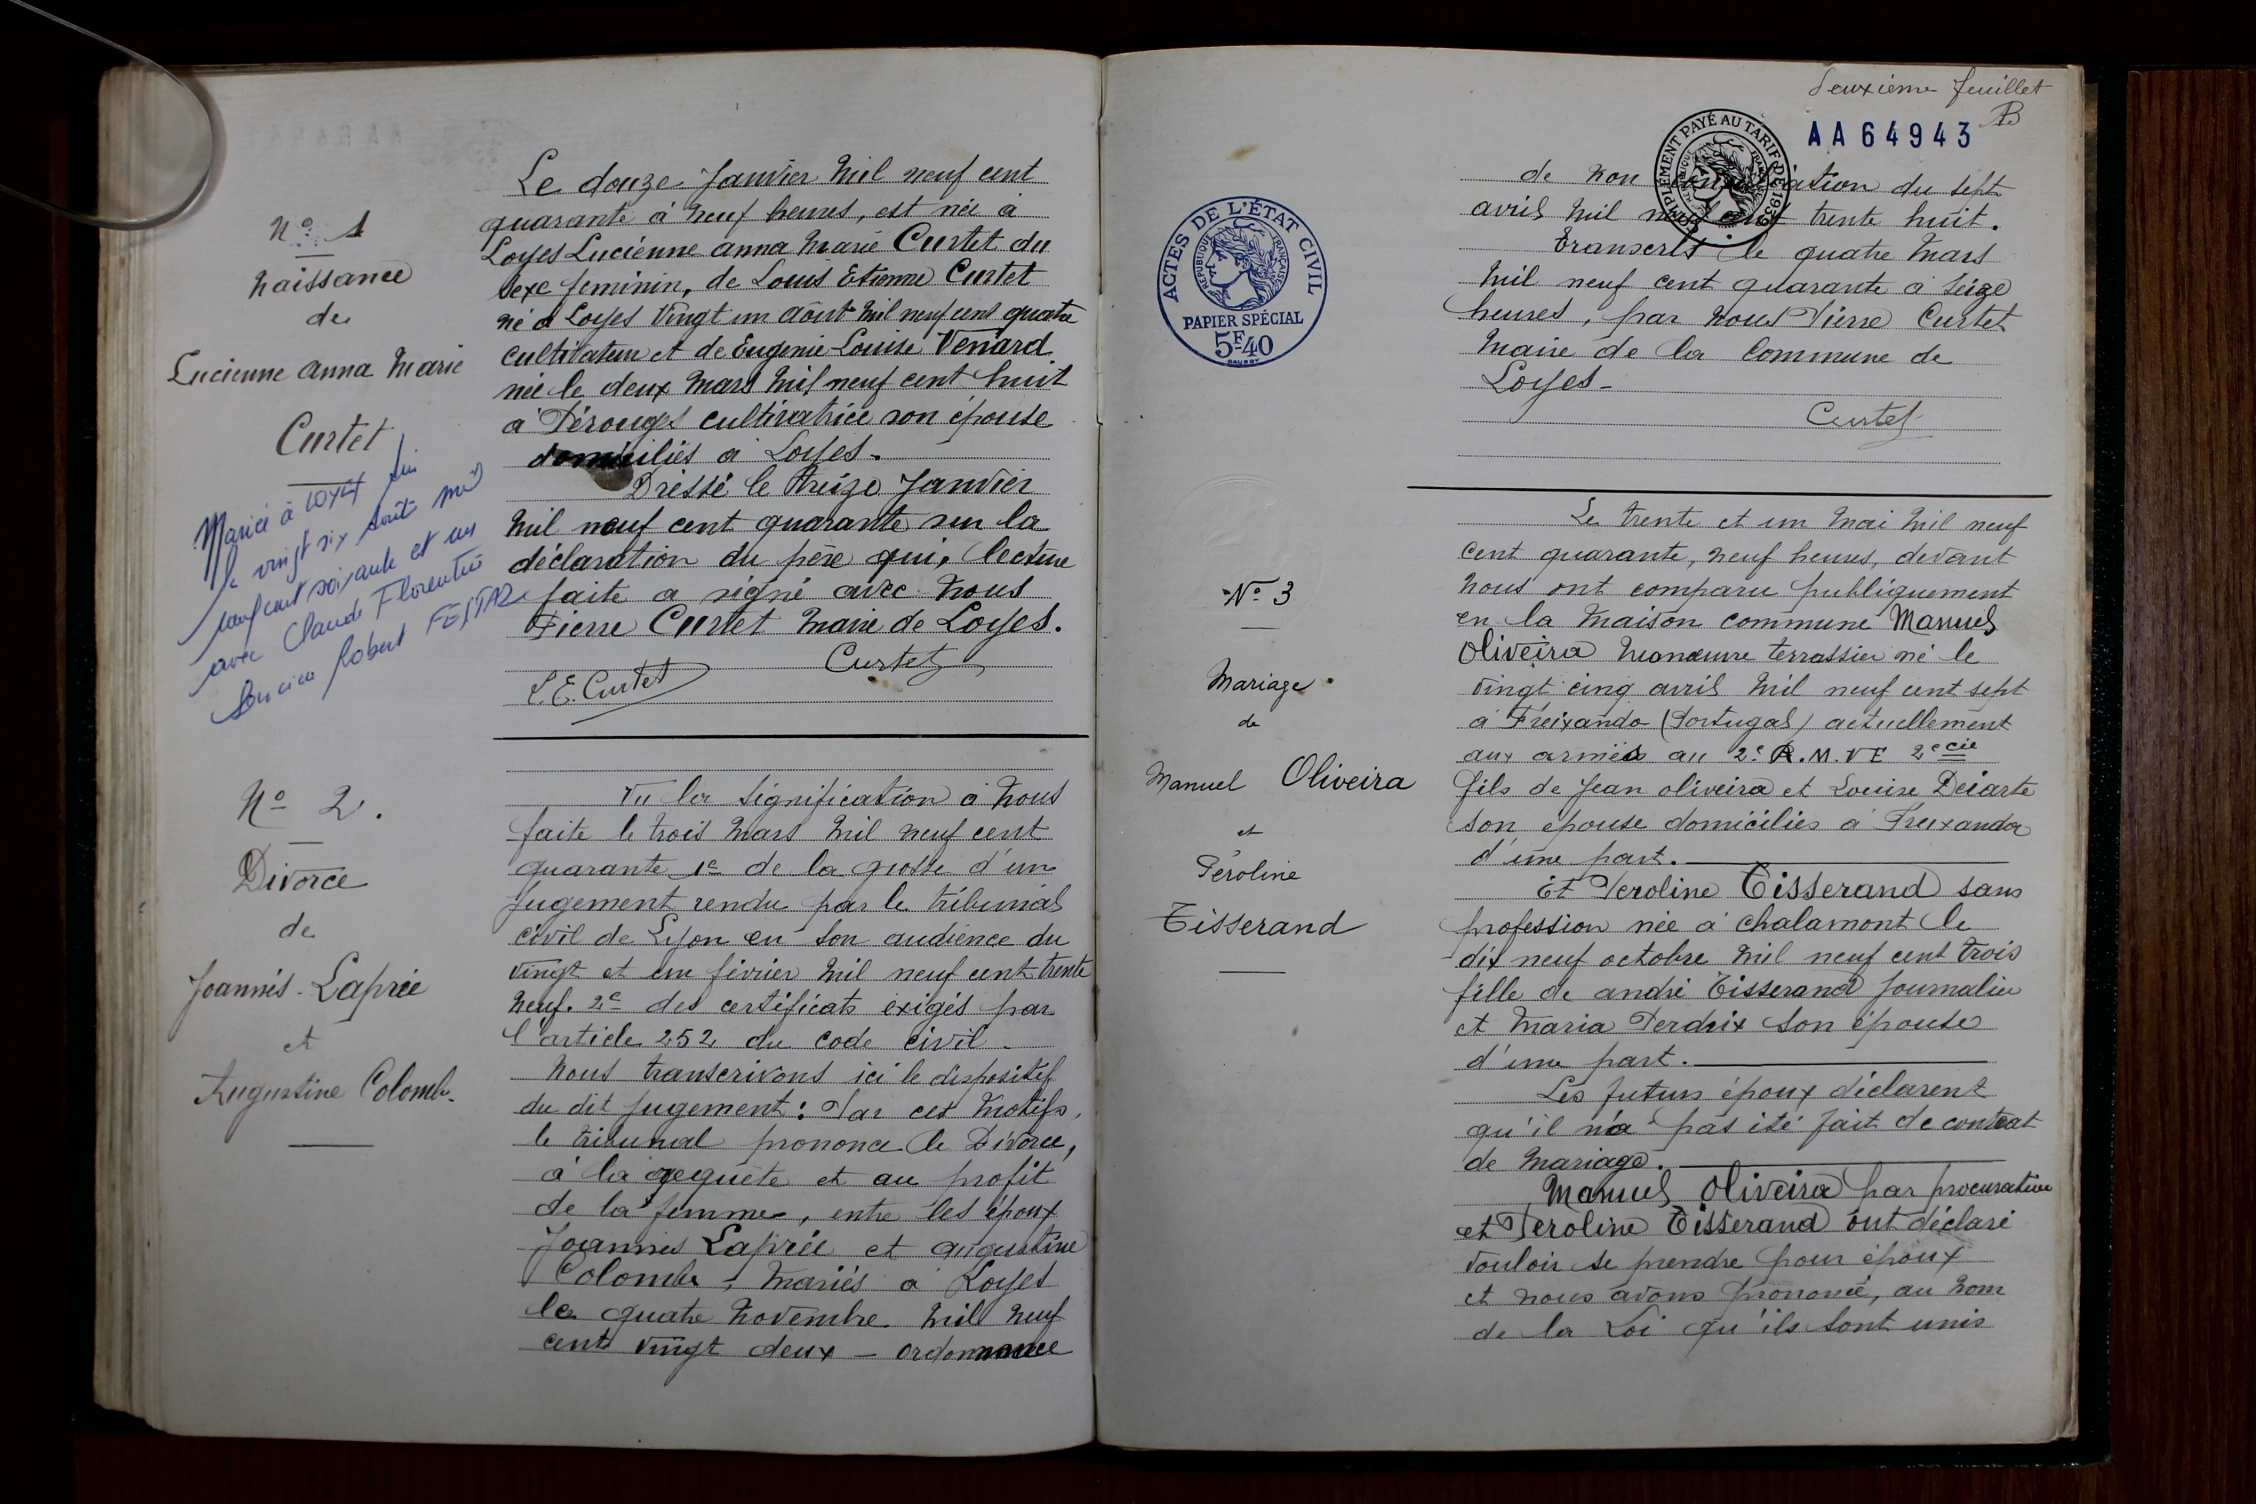 N° 1
Naissance
de
Lucienne Anna Marie
Curtet
Mariée à Loyes (Ain
le vingt six août mil
neuf cent soixante et un
avec Claude Florentin
Robert
Le douze Janvier mil neuf cent
quarante à neuf heures, est née à
Loyes Lucienne Anna Marie Curtet du
sexe feminin, de Louis Etienne Curtet
né à Loyes Vingt un août mil neuf cent quatre
cultivateur et de Eugenie Louise Venard
née le deux Mars mil neuf cent huit
à Pérouges cultivatrice son épouse
domiciliés à Loyes.
Dressé le treize Janvier
mil neuf cent quarante sur la
déclaration du père qui, lecture
faite a signé avec Nous
Pierre Curtet Maire de Loyes.
L. E. Curtet Curtet
N° 2.
Divorce
de
Joannès Laprée
et
Augustine Colomb.
Vu la signification à Nous
faite le trois Mars mil neuf cent
quarante 1e de la grosse d'un
Jugement rendu par le tribunal
civil de Lyon en son audience du
vingt et un février mil neuf cent trente
neuf. 2e des certificats exigés par
l'article 252 du code civil.
Nous transcrivons ici le dispositif
du dit Jugement : Par ces Motifs,
le tribunal prononce le Divorce,
à la requête et au profit
de la femme, entre les époux
Joannes Laprée et Augustine
Colomb, mariés à Loyes
le quatre Novembre mil neuf
cent vingt deux — ordonnance
Deuxième feuillet
AA64943
SUPPLÉMENT PAYÉ AU TARIF DE 1939
de Non conciliation du sept
avril mil neuf cent trente huit.
Transcrit le quatre Mars
Mil neuf cent quarante à seize
heures, par Nous Pierre Curtet
Maire de la Commune de
Loyes -
Curtet
ACTES DE L'ÉTAT CIVIL
RÉPUBLIQUE FRANÇAISE
PAPIER SPÉCIAL
5F40
N° 3
Mariage
de
Manuel Oliveira
et
Péroline
Tisserand
Le trente et un Mai Mil neuf
cent quarante, neuf heures, devant
Nous ont comparu publiquement
en la Maison commune Manuel
Oliveira Manœuvre terrassier né le
vingt cinq avril mil neuf cent sept
à Freixando (Portugal) actuellement
aux armées au 2e R.M.VE 2e cie
fils de Jean Oliveira et Louise Déiarte
son épouse domiciliés à Freixando
d'une part.
Et Peroline Tisserand sans
profession née à Chalamont le
dix neuf octobre mil neuf cent trois
fille de André Tisserand Journalier
et Maria Perdrix son épouse
d'une part.
Les futurs époux déclarent
qu'il n'a pas été fait de contrat
de Mariage.
Manuel Oliveira par procuration
et Peroline Tisserand ont déclaré
vouloir se prendre pour époux
et nous avons prononcé, au Nom
de la Loi qu'ils sont unis